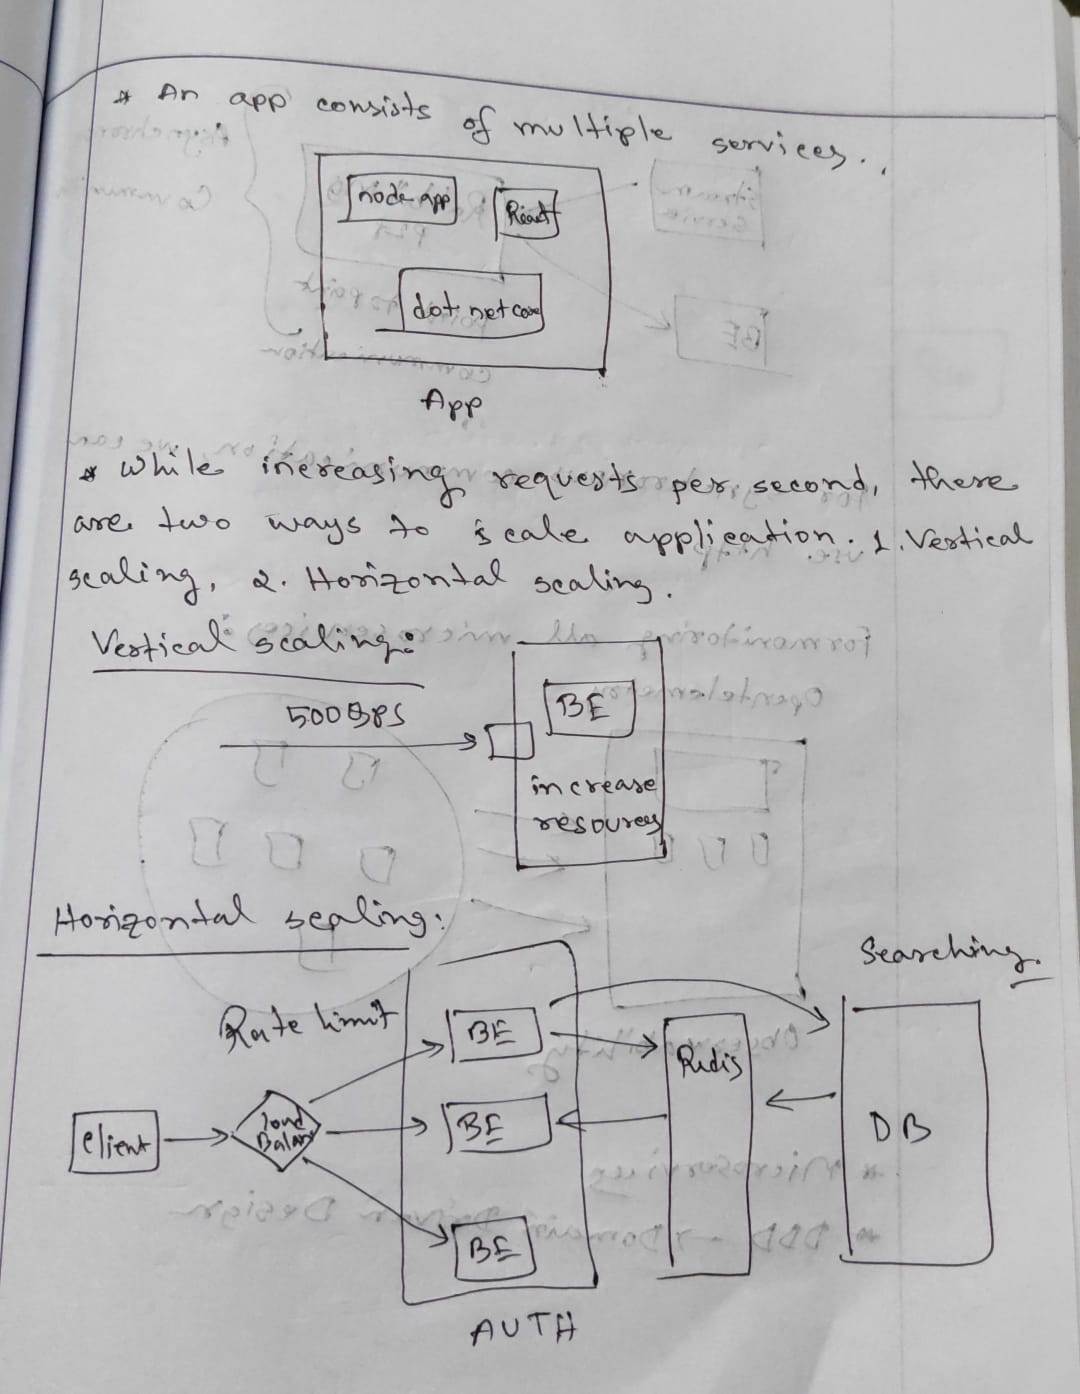 * An app consists of multiple services..
node app
React
dot net core
App
* While increasing requests per second, there
are two ways to scale application. 1. Vertical
scaling, 2. Horizontal scaling.
Vertical scaling:
BE
increase
resources
Horizontal scaling:
Searching
Rate limit
BE
Redis
Client
Load
Balan
BE
DB
BE
AUTH